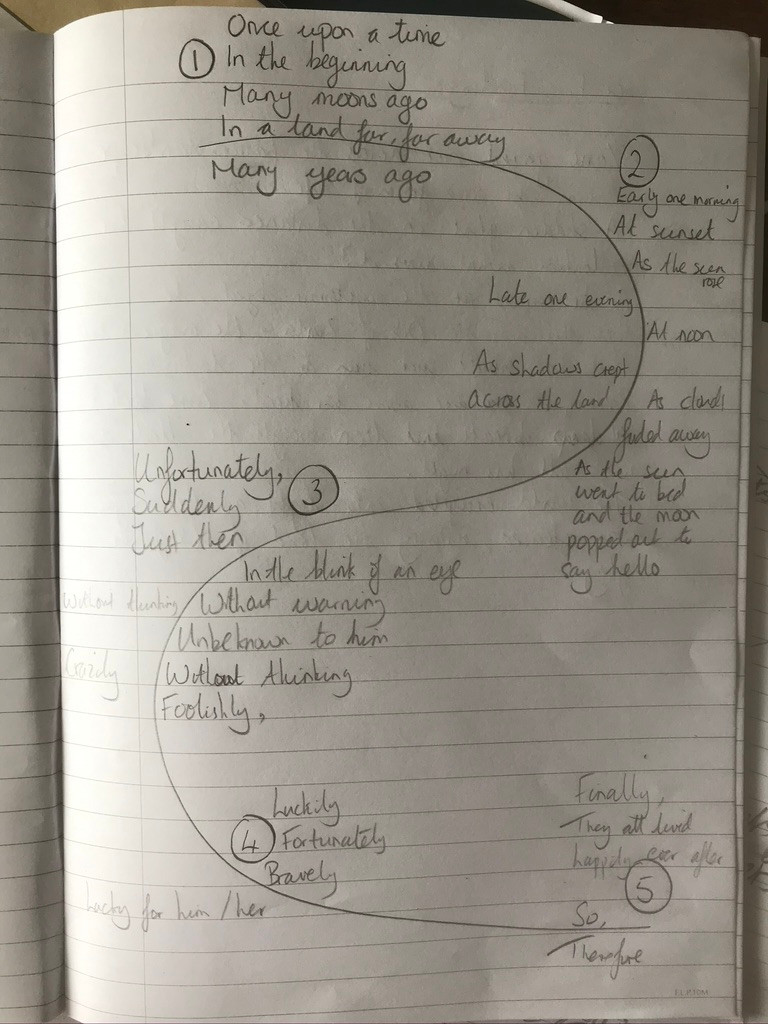 Once upon a time
1 In the beginning
Many moons ago
In a land far, far away
Many years ago
2
Early one morning
At sunset
As the sun
rose
Late one evening
At noon
As shadows crept
across the land
As clouds
faded away
As the sun
went to bed
and the moon
popped out to
say hello
3
Unfortunately,
Suddenly
Just then
In the blink of an eye
Without thinking
Without warning
Unbeknown to him
Crazily
Without thinking
Foolishly,
Luckily
4 Fortunately
Bravely
Lucky for him/her
Finally,
They all lived
happily ever after
5
So,
Therefore